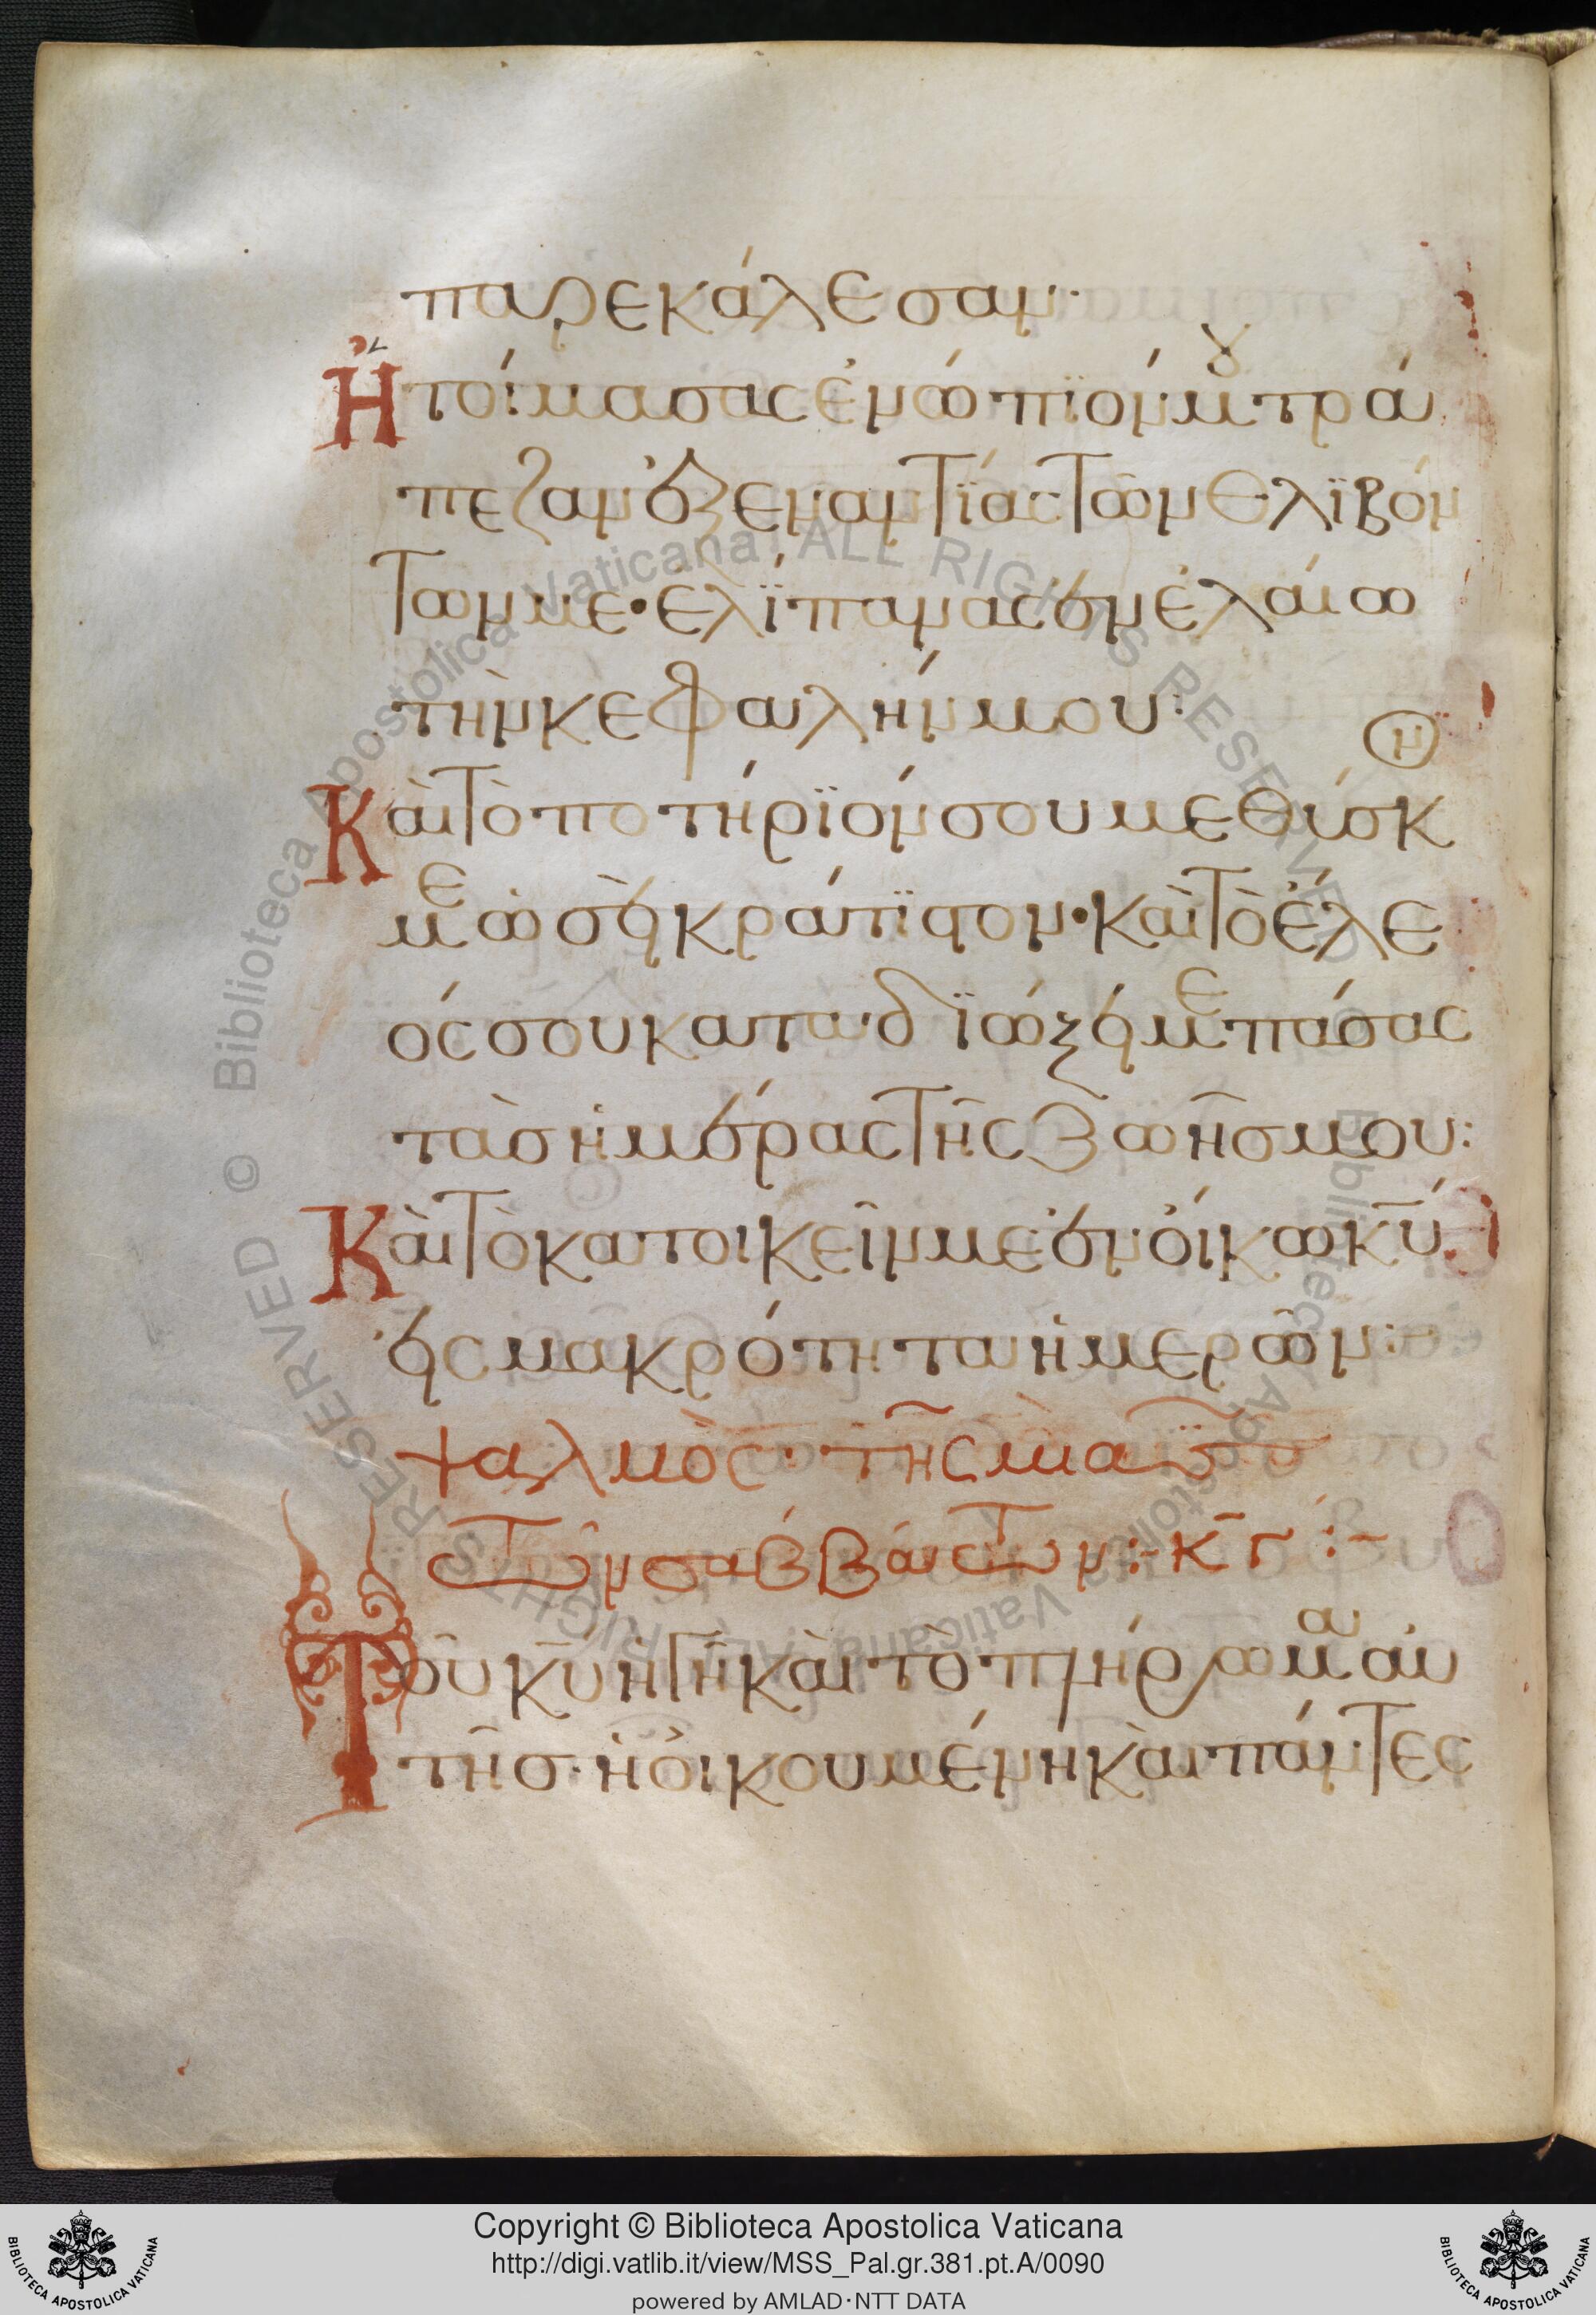 παρεκάλεσαν·
Ἡτοίμασας ἐνώπϊόν μου τρά
πεζαν ἐξεναντϊάς τῶν θλϊβόν
των με· ἐλίπανας ἐν ἐλαίω
τὴν κεφαλήν μου:
Καὶ τὸ ποτήρϊόν σου μεθύσκ
με ὡσεὶ κράτϊστον· καὶ τὸ ἔλε
ός σου καταδϊώξει με πάσας
τὰς ἡμέρας τῆς ζωῆς μου:
Καὶ τὸ κατοικεῖν με ἐν οἴκω κ̅υ̅
εἰς μακρότητα ἡμερῶν:-
ψαλμὸς· τῆς μιᾶς
τῶν σαββάτων:- κ̅γ̅ :-
Τοῦ κ̅υ̅ ἡ γῆ καὶ τὸ πλήρωμα αὐ
τῆς· ἡ οἰκουμένη καὶ πάντες
© Biblioteca Apostolica Vaticana ALL RIGHTS RESERVED
Copyright © Biblioteca Apostolica Vaticana
http://digi.vatlib.it/view/MSS_Pal.gr.381.pt.A/0090
powered by AMLAD·NTT DATA
BIBLIOTECA APOSTOLICA VATICANA
BIBLIOTECA APOSTOLICA VATICANA